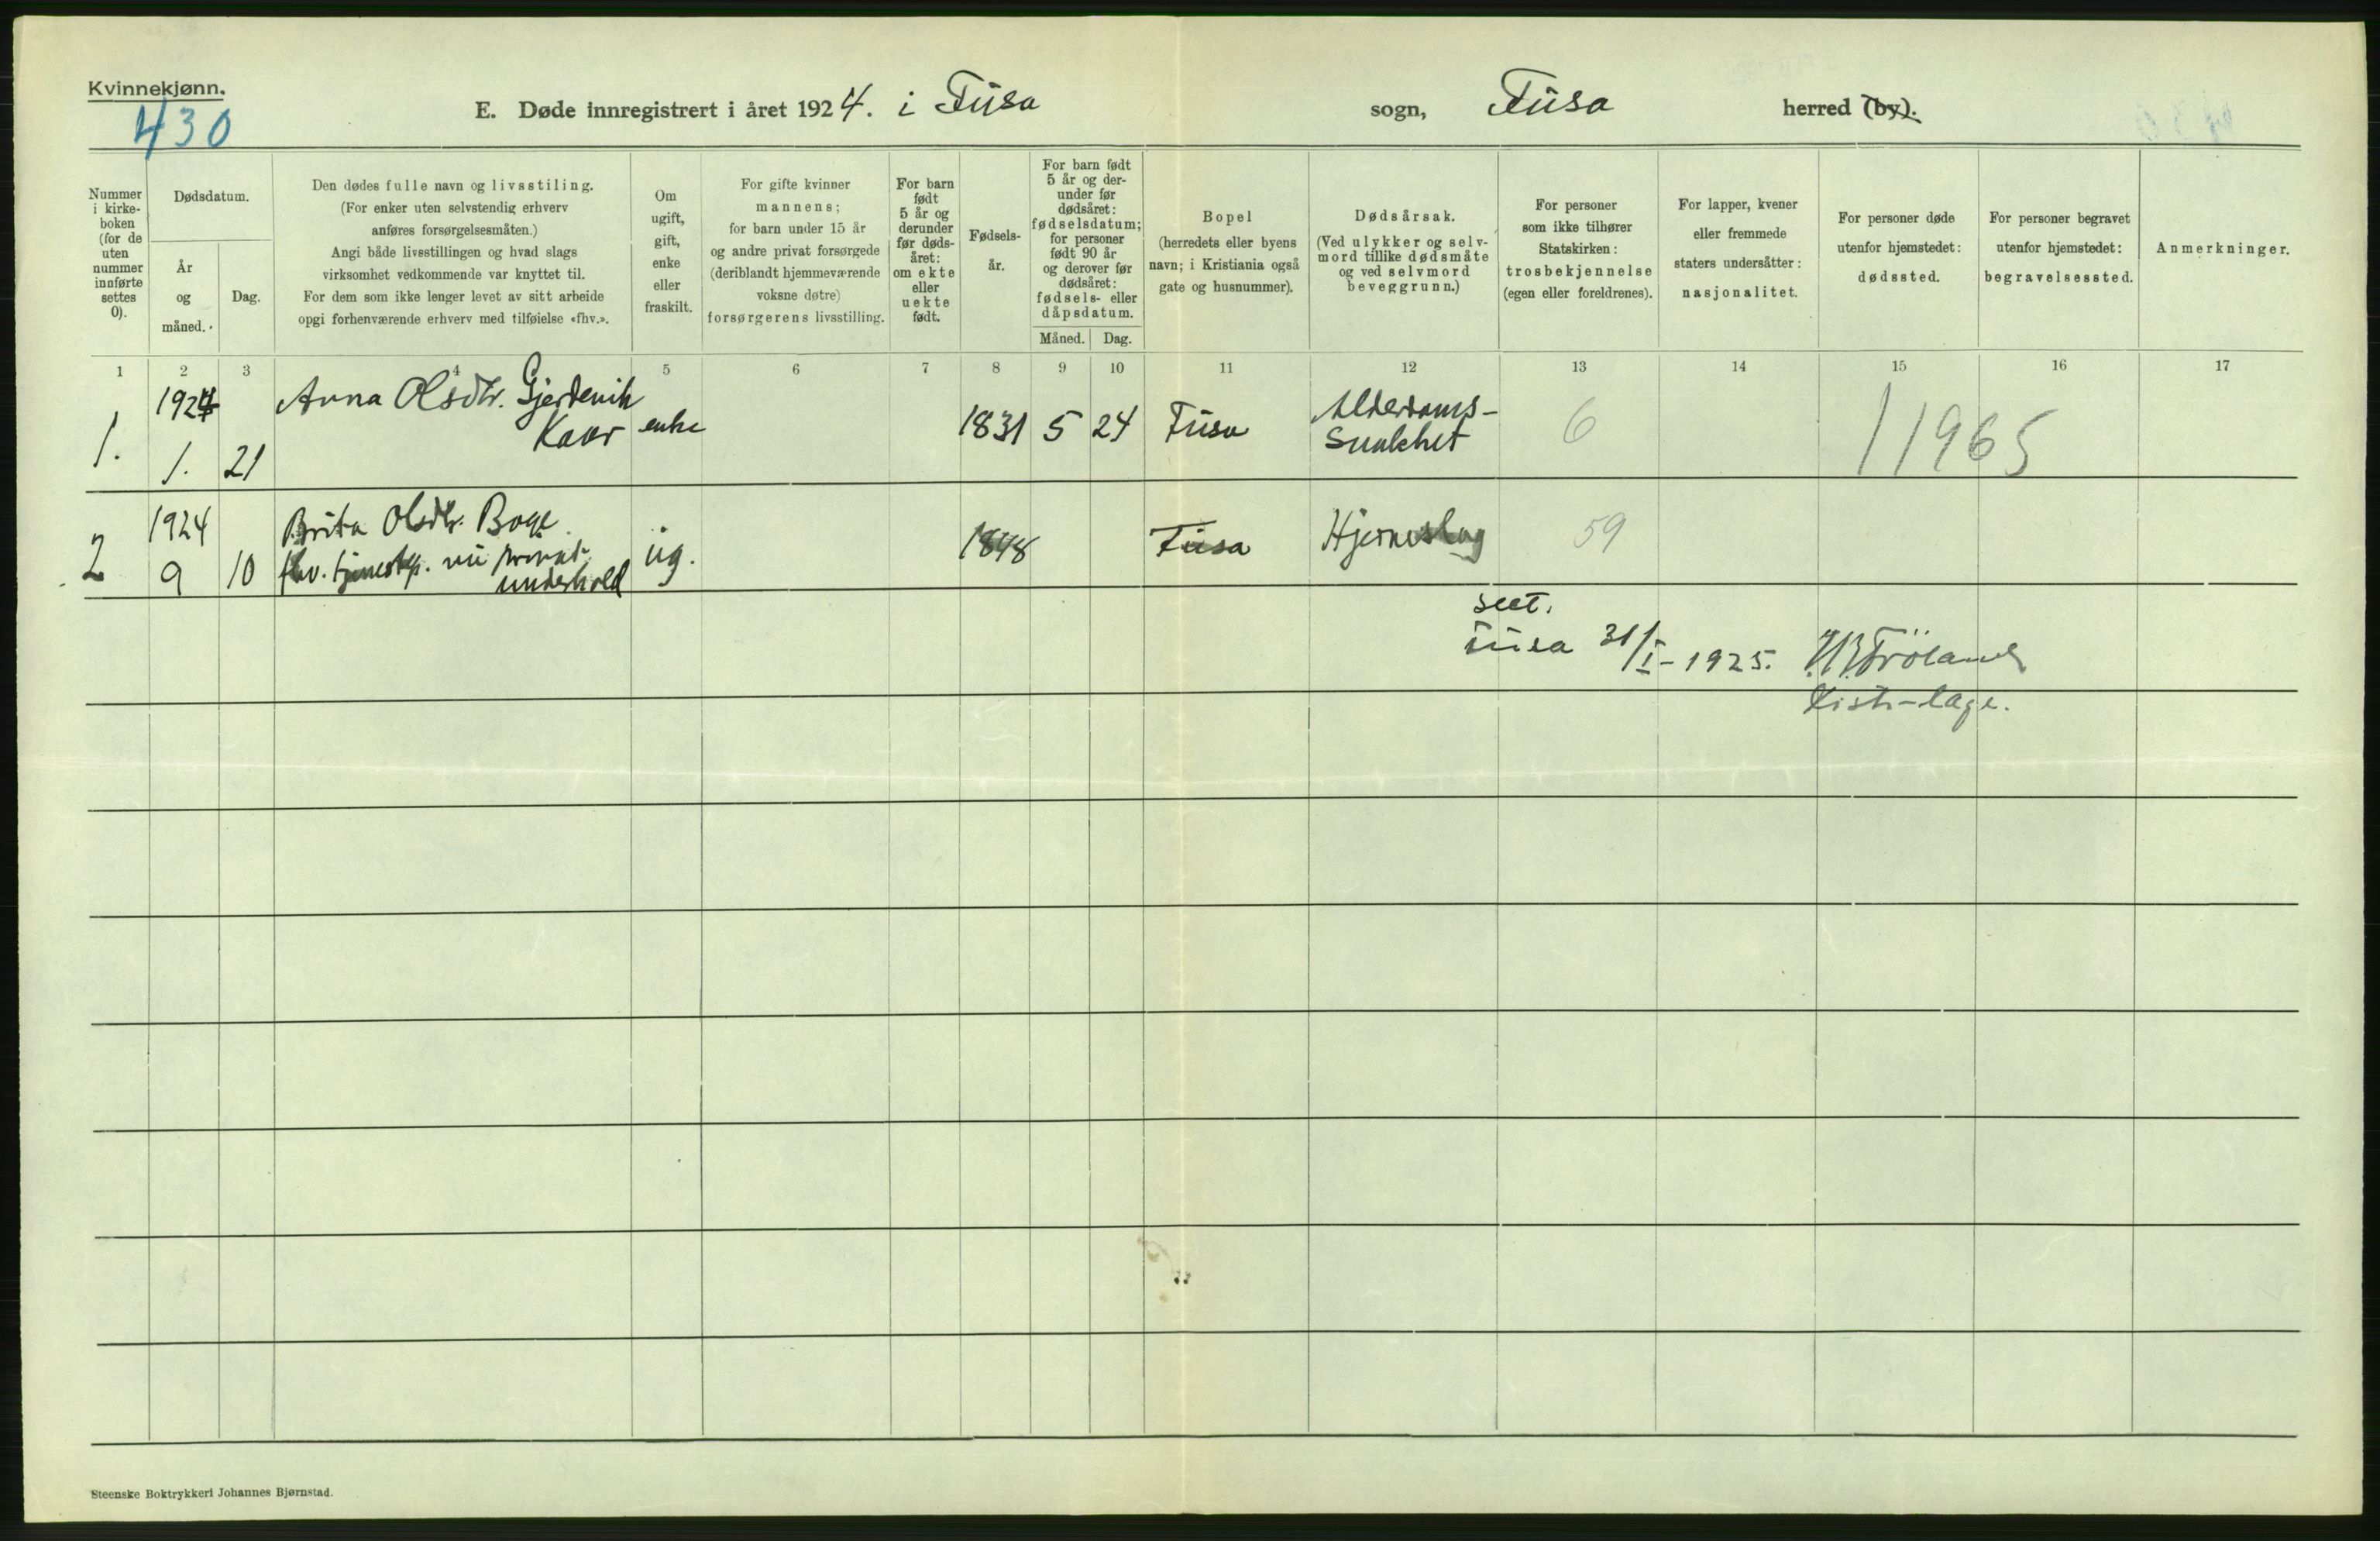 Kvinnekjønn.
430
E. Døde innregistrert i året 1924. i Fusa sogn, Fusa herred (by).
Nummer i kirke-boken (for de uten nummer innførte settes 0).
Dødsdatum.
År og måned.
Dag.
Den dødes fulle navn og livsstiling.
(For enker uten selvstendig erhverv
anføres forsørgelsesmåten.)
Angi både livsstillingen og hvad slags
virksomhet vedkommende var knyttet til.
For dem som ikke lenger levet av sitt arbeide
opgi forhenværende erhverv med tilføielse «fhv.».
Om
ugift,
gift,
enke
eller
fraskilt.
For gifte kvinner
mannens;
for barn under 15 år
og andre privat forsørgede
(deriblandt hjemmeværende
voksne døtre)
forsørgerens livsstilling.
For barn
født
5 år og
derunder
før døds-
året:
om ekte
eller
uekte
født.
Fødsels-
år.
For barn født
5 år og der-
under før
dødsåret:
fødselsdatum;
for personer
født 90 år
og derover før
dødsåret:
fødsels- eller
dåpsdatum.
Måned. Dag.
Bopel
(herredets eller byens
navn; i Kristiania også
gate og husnummer).
Dødsårsak.
(Ved ulykker og selv-
mord tillike dødsmåte
og ved selvmord
beveggrunn.)
For personer
som ikke tilhører
Statskirken:
trosbekjennelse
(egen eller foreldrenes).
For lapper, kvener
eller fremmede
staters undersåtter:
nasjonalitet.
For personer døde
utenfor hjemstedet:
dødssted.
For personer begravet
utenfor hjemstedet:
begravelsessted.
Anmerkninger.
1 2 3 4 5 6 7 8 9 10 11 12 13 14 15 16 17
1924 Anna Olsdtr. Gjerdevik
1. 1. 21 Kaar enke 1831 5 24 Fusa Alderdoms-
svakhet 6 11965
1924 Brita Olsdtr. Boge
2 9 10 fhv. tjenestep. nu privat ug. 1848 Fusa Hjerneslag 59
underhold
Fusa 31/I-1925.
Steenske Boktrykkeri Johannes Bjørnstad.